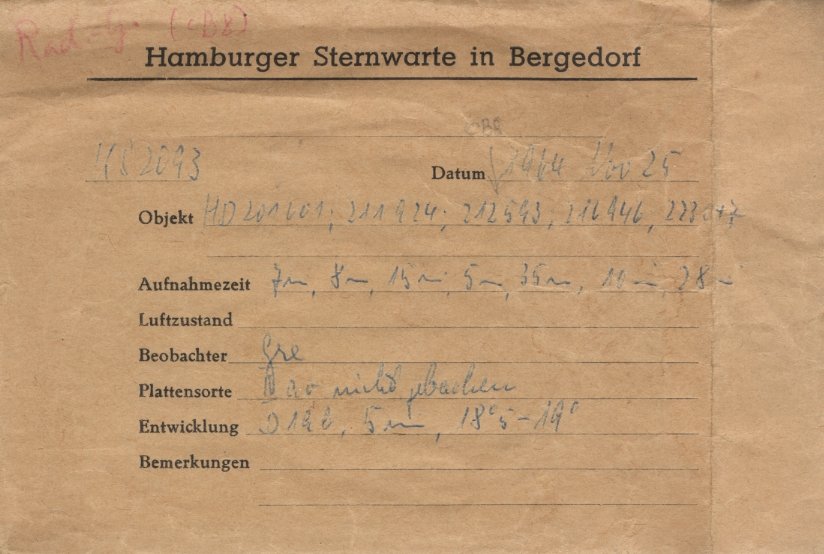 Rad.-G. (CBR)
Hamburger Sternwarte in Bergedorf
CBR
KS 2093 Datum 1964 Nov 25
Objekt HD 201601; 211924; 212593; 216946, 223047
Aufnahmezeit 7m, 8m, 15m, 5m, 35m, 10m, 28m
Luftzustand
Beobachter Gre
Plattensorte nicht gebacken
Entwicklung D19b, 5min, 18°5-19°
Bemerkungen